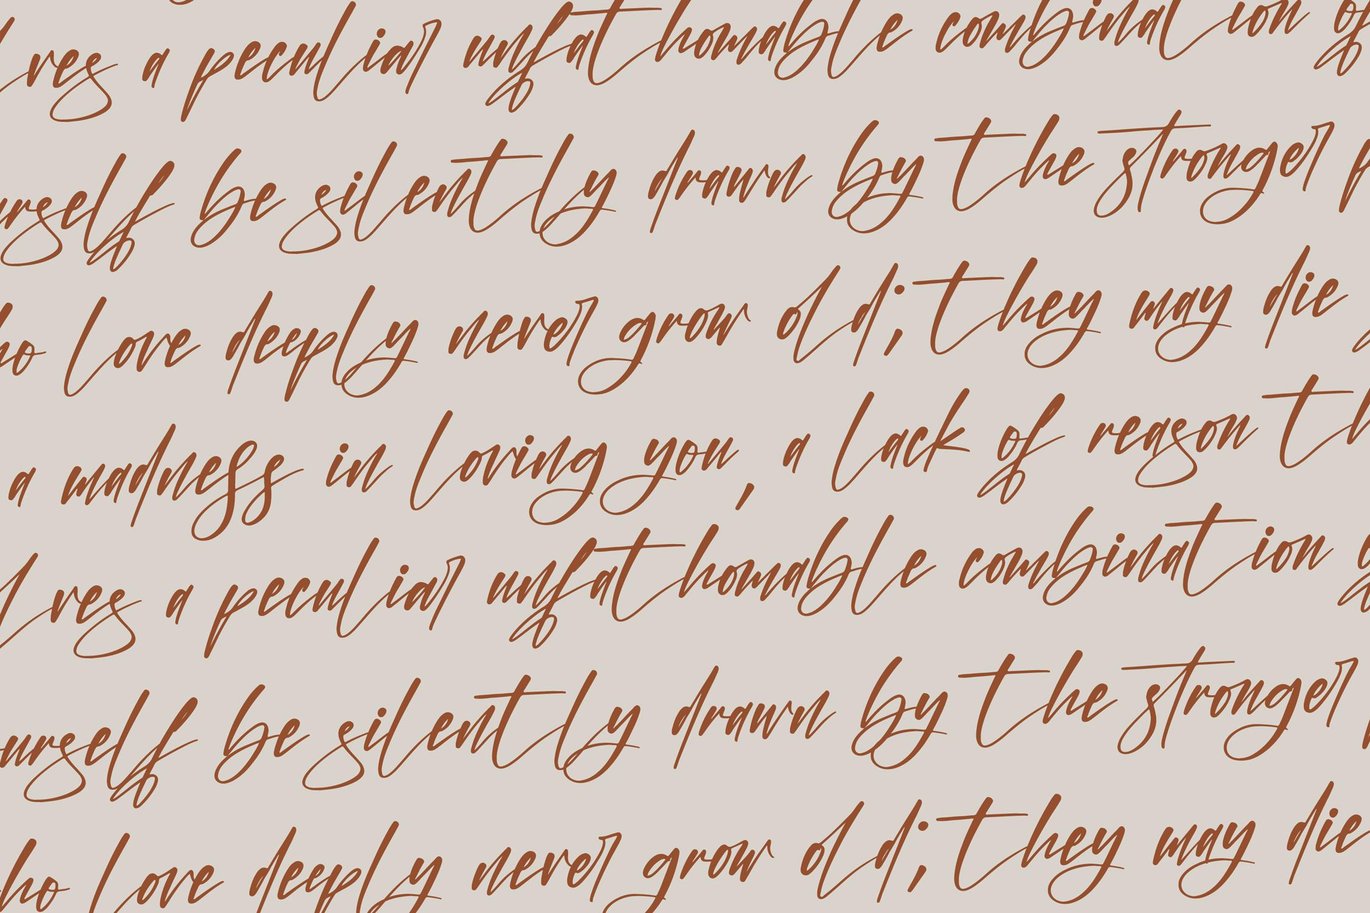 res a peculiar unfathomable combination of
urself be silently drawn by the stronger
ho love deeply never grow old; they may die
a madness in loving you, a lack of reason th
res a peculiar unfathomable combination
urself be silently drawn by the stronger
ho love deeply never grow old; they may die